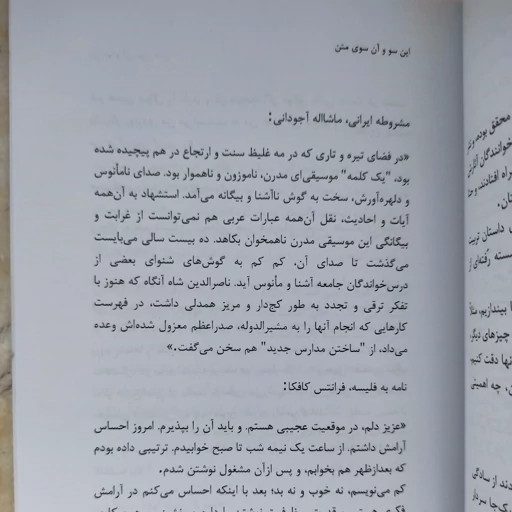 این سو و آن سوی متن
مشروطه ایرانی، ماشااله آجودانی:
«در فضای تیره و تاری که در مه غلیظ سنت و ارتجاع در هم پیچیده شده
بود، "یک کلمه" موسیقی‌ای مدرن، ناموزون و ناهموار بود. صدای نامأنوس
و دلهره‌آورش، سخت به گوش ناآشنا و بیگانه می‌آمد. استشهاد به آن‌همه
آیات و احادیث، نقل آن‌همه عبارات عربی هم نمی‌توانست از غرابت و
بیگانگی این موسیقی مدرن ناهمخوان بکاهد. ده بیست سالی می‌بایست
می‌گذشت تا صدای آن، کم کم به گوش‌های شنوای بعضی از
درس‌خواندگان جامعه آشنا و مأنوس آید. ناصرالدین شاه آنگاه که هنوز با
تفکر ترقی و تجدد به طور کج‌دار و مریز همدلی داشت، در فهرست
کارهایی که انجام آنها را به مشیرالدوله، صدراعظم معزول شده‌اش وعده
می‌داد، از "ساختن مدارس جدید" هم سخن می‌گفت.»
نامه به فلیسه، فرانتس کافکا:
«عزیز دلم، در موقعیت عجیبی هستم. و باید آن را بپذیرم. امروز احساس
آرامش داشتم. از ساعت یک نیمه شب تا صبح خوابیدم. ترتیبی داده بودم
که بعدازظهر هم بخوابم، و پس ازآن مشغول نوشتن شدم.
کم می‌نویسم، نه خوب و نه بد؛ بعد با اینکه احساس می‌کنم در آرامش
محقق بوده، و
خوانندگان
راه افتادند، و
تان.
داستان تربیت
بیندازیم، مثلاً
چیزهای دیگر،
نها دقت کنیم
چه اهمیتی
دند از سادگی